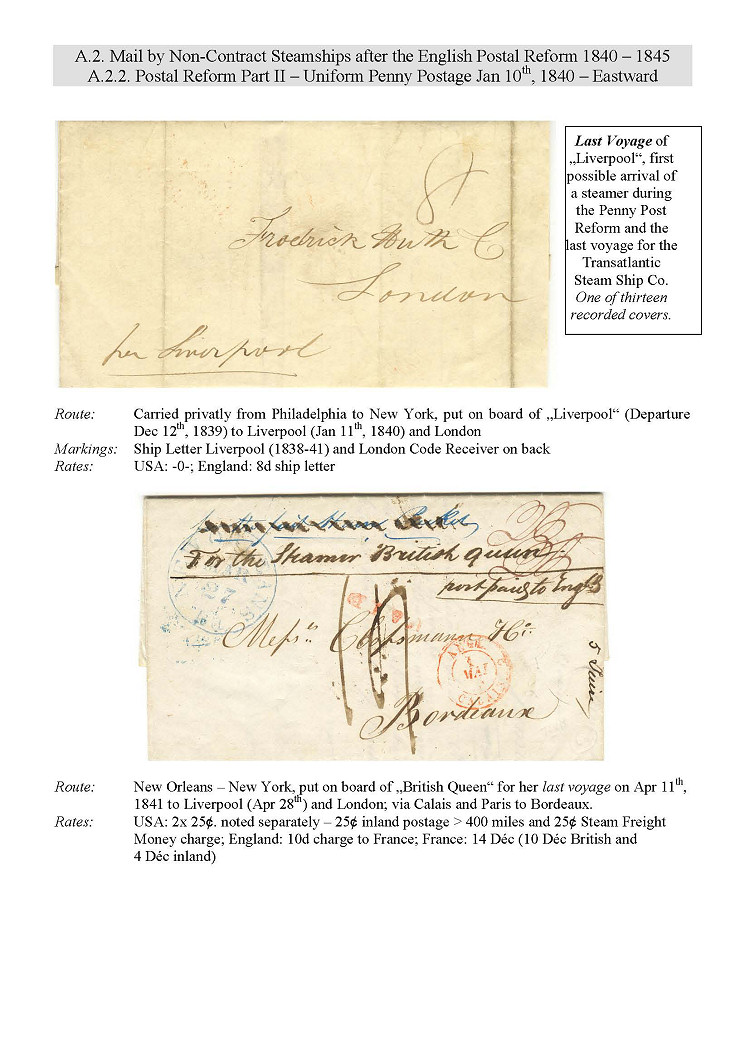 A.2. Mail by Non-Contract Steamships after the English Postal Reform 1840 – 1845
A.2.2. Postal Reform Part II – Uniform Penny Postage Jan 10th, 1840 – Eastward
8
Frodrick Huth C
London
per Liverpool
Last Voyage of
„Liverpool“, first
possible arrival of
a steamer during
the Penny Post
Reform and the
last voyage for the
Transatlantic
Steam Ship Co.
One of thirteen
recorded covers.
Route: Carried privatly from Philadelphia to New York, put on board of „Liverpool“ (Departure
Dec 12th, 1839) to Liverpool (Jan 11th, 1840) and London
Markings: Ship Letter Liverpool (1838-41) and London Code Receiver on back
Rates: USA: -0-; England: 8d ship letter
For the Steamer British Queen
post paid to Engld
Messrs
Bordeaux
MAI
CALAIS
5 Juin
Route: New Orleans – New York, put on board of „British Queen“ for her last voyage on Apr 11th,
1841 to Liverpool (Apr 28th) and London; via Calais and Paris to Bordeaux.
Rates: USA: 2x 25¢. noted separately – 25¢ inland postage > 400 miles and 25¢ Steam Freight
Money charge; England: 10d charge to France; France: 14 Déc (10 Déc British and
4 Déc inland)